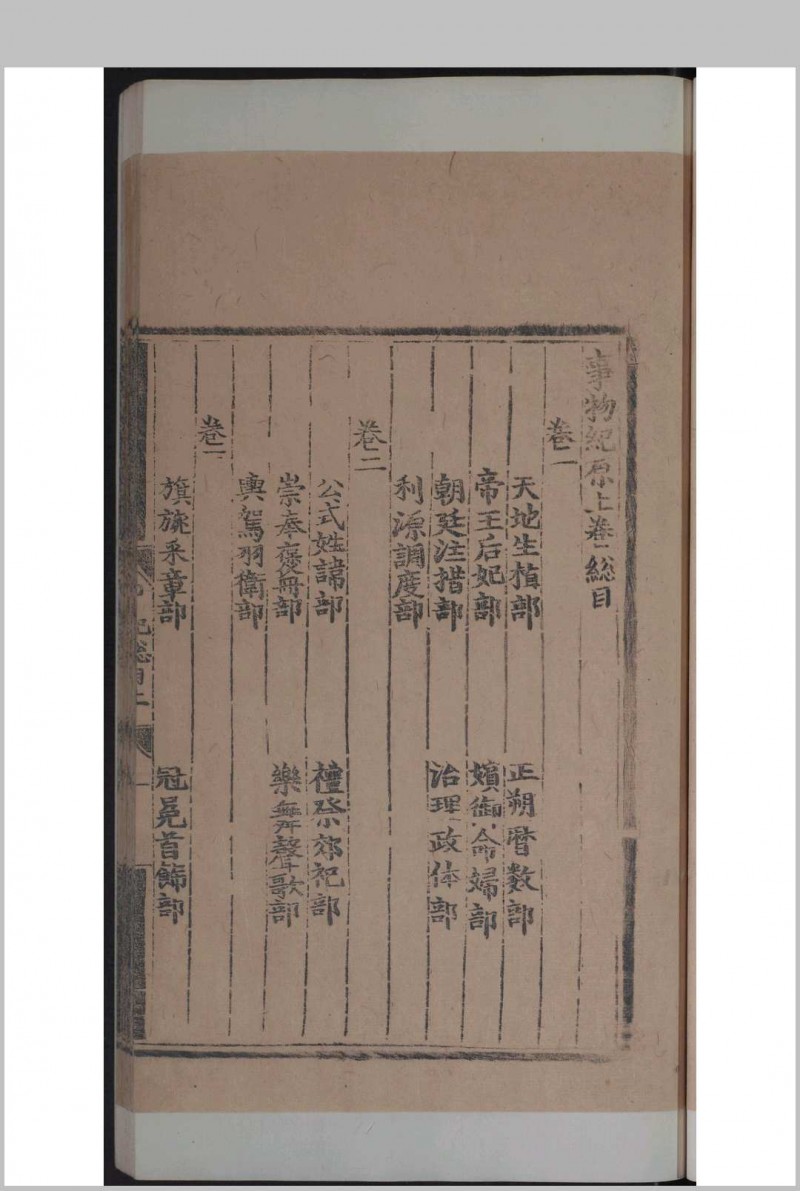 事物紀原上卷總目
卷一
天地生植部　正朔曆數部
帝王后妃部　嬪御命婦部
朝廷注措部　治理政体部
利源調度部
卷二
公式姓諱部　禮祭郊祀部
崇奉褒冊部　樂舞聲歌部
輿駕羽衛部
卷
旗旐采章部　冠冕首飾部